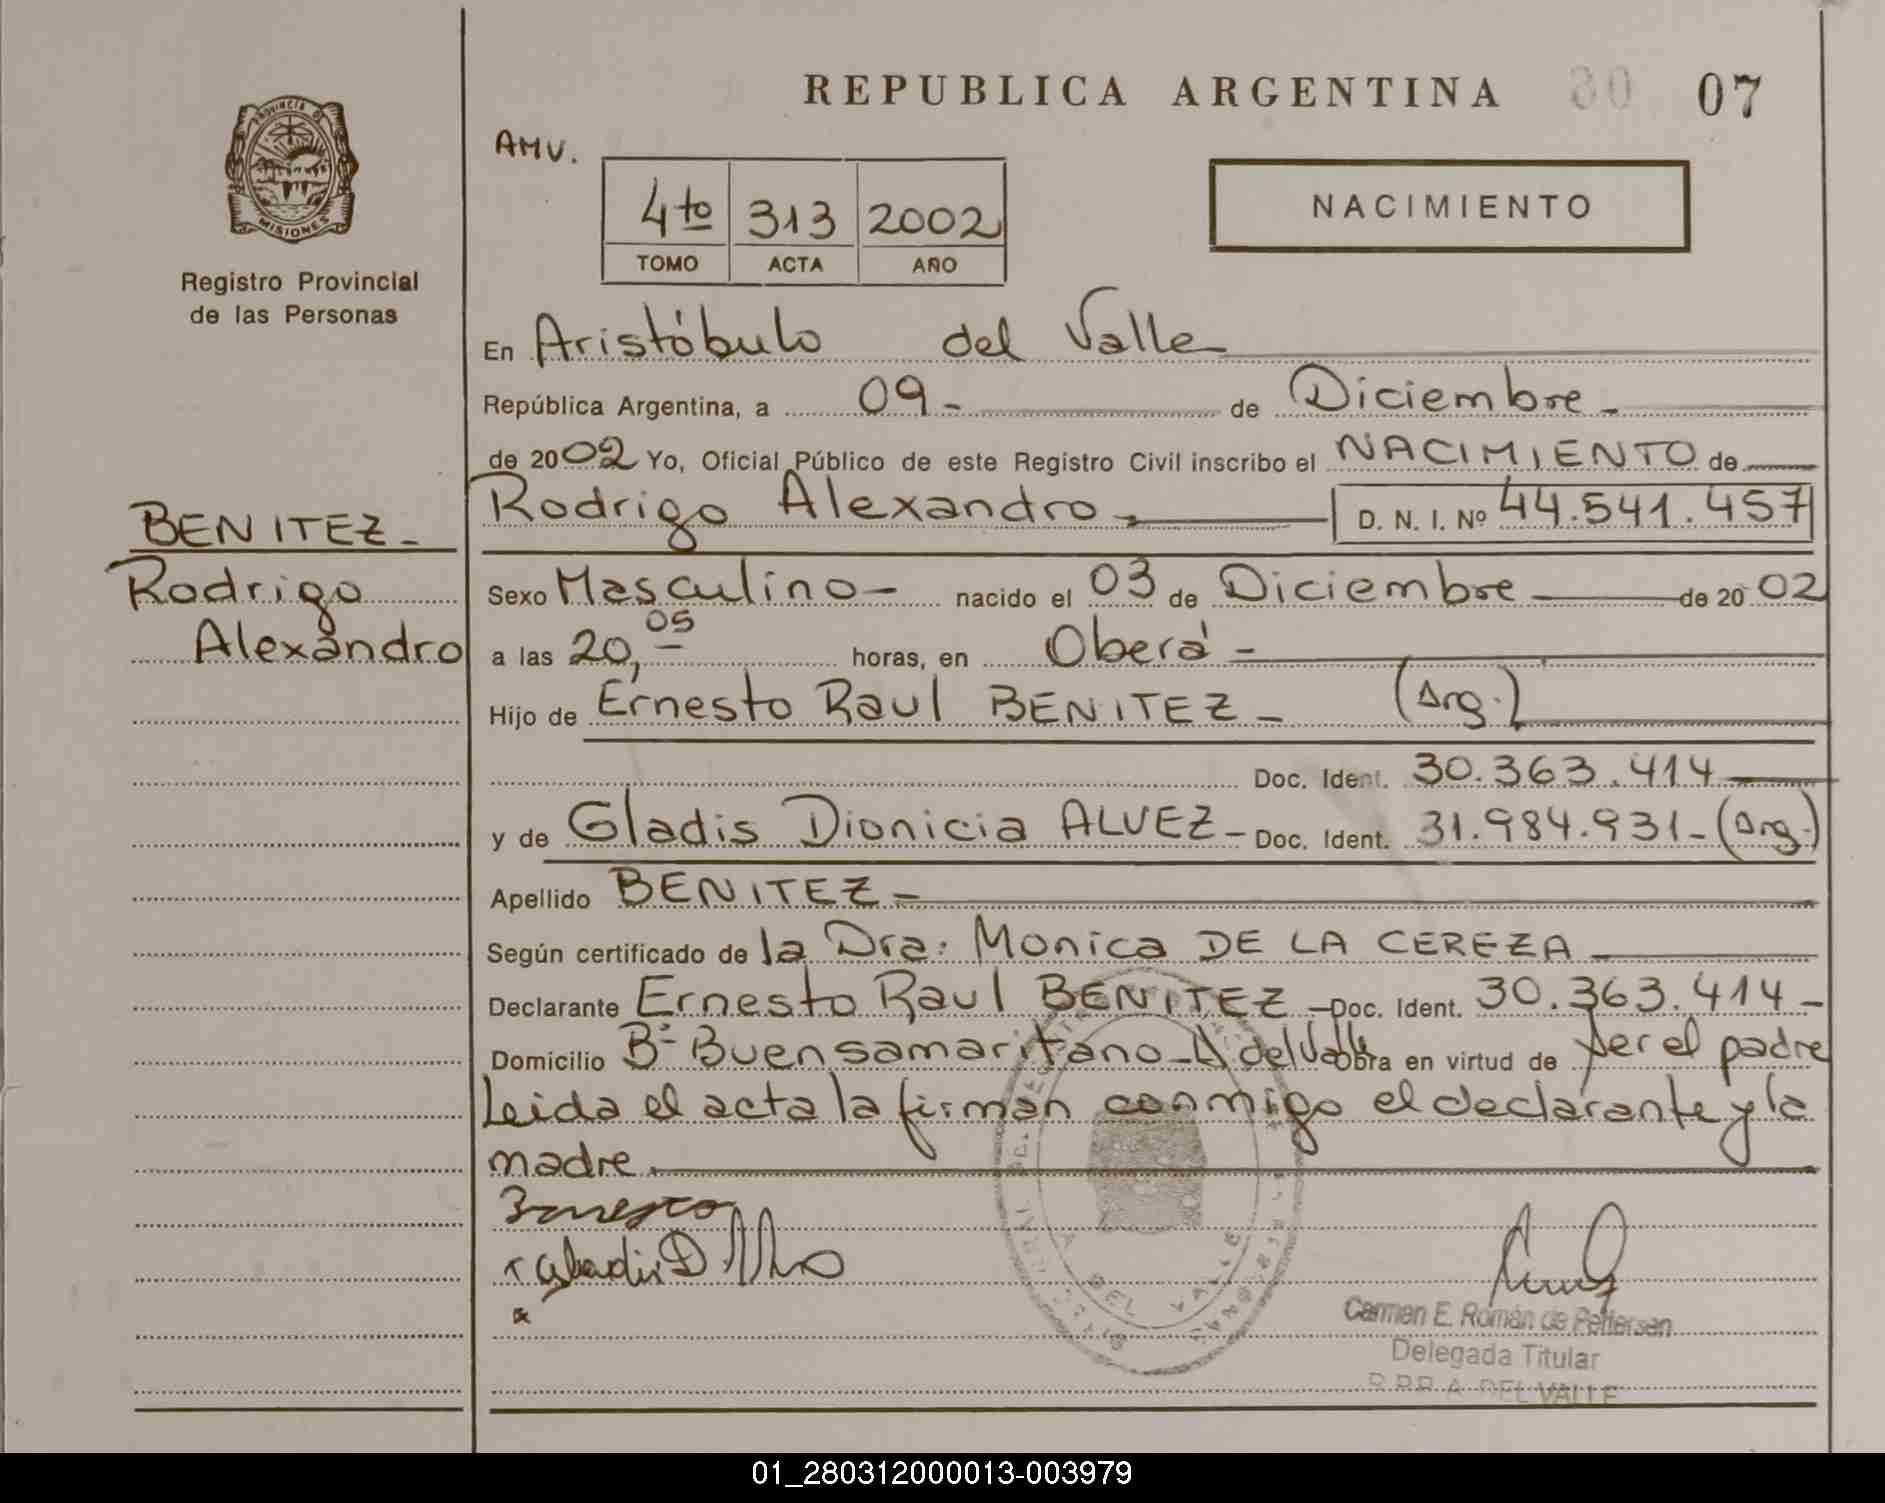 REPUBLICA ARGENTINA 30 07
PROVINCIA DE
MISIONES
Registro Provincial
de las Personas
AMV.
4to 313 2002
TOMO ACTA AÑO
NACIMIENTO
En Aristóbulo del Valle
República Argentina, a 09 - de Diciembre -
de 2002 Yo, Oficial Público de este Registro Civil inscribo el NACIMIENTO de
Rodrigo Alexandro - D. N. I. Nº 44.541.457
BENITEZ -
Rodrigo
Alexandro
Sexo Masculino - nacido el 03 de Diciembre de 2002
a las 20,05 horas, en Oberá -
Hijo de Ernesto Raul BENITEZ - (Arg.)
Doc. Ident. 30.363.414
y de Gladis Dionicia ALVEZ - Doc. Ident. 31.984.931 - (Arg.)
Apellido BENITEZ -
Según certificado de la Dra: Monica DE LA CEREZA
Declarante Ernesto Raul BENITEZ - Doc. Ident. 30.363.414 -
Domicilio Bº Buen samaritano - A del Valle obra en virtud de ser el padre
Leida el acta la firman conmigo el declarante y la
madre.
Ernesto
DEL VALLE
Carmen E. Román de Pettersen
Delegada Titular
R.P.P. A. DEL VALLE
01_280312000013-003979